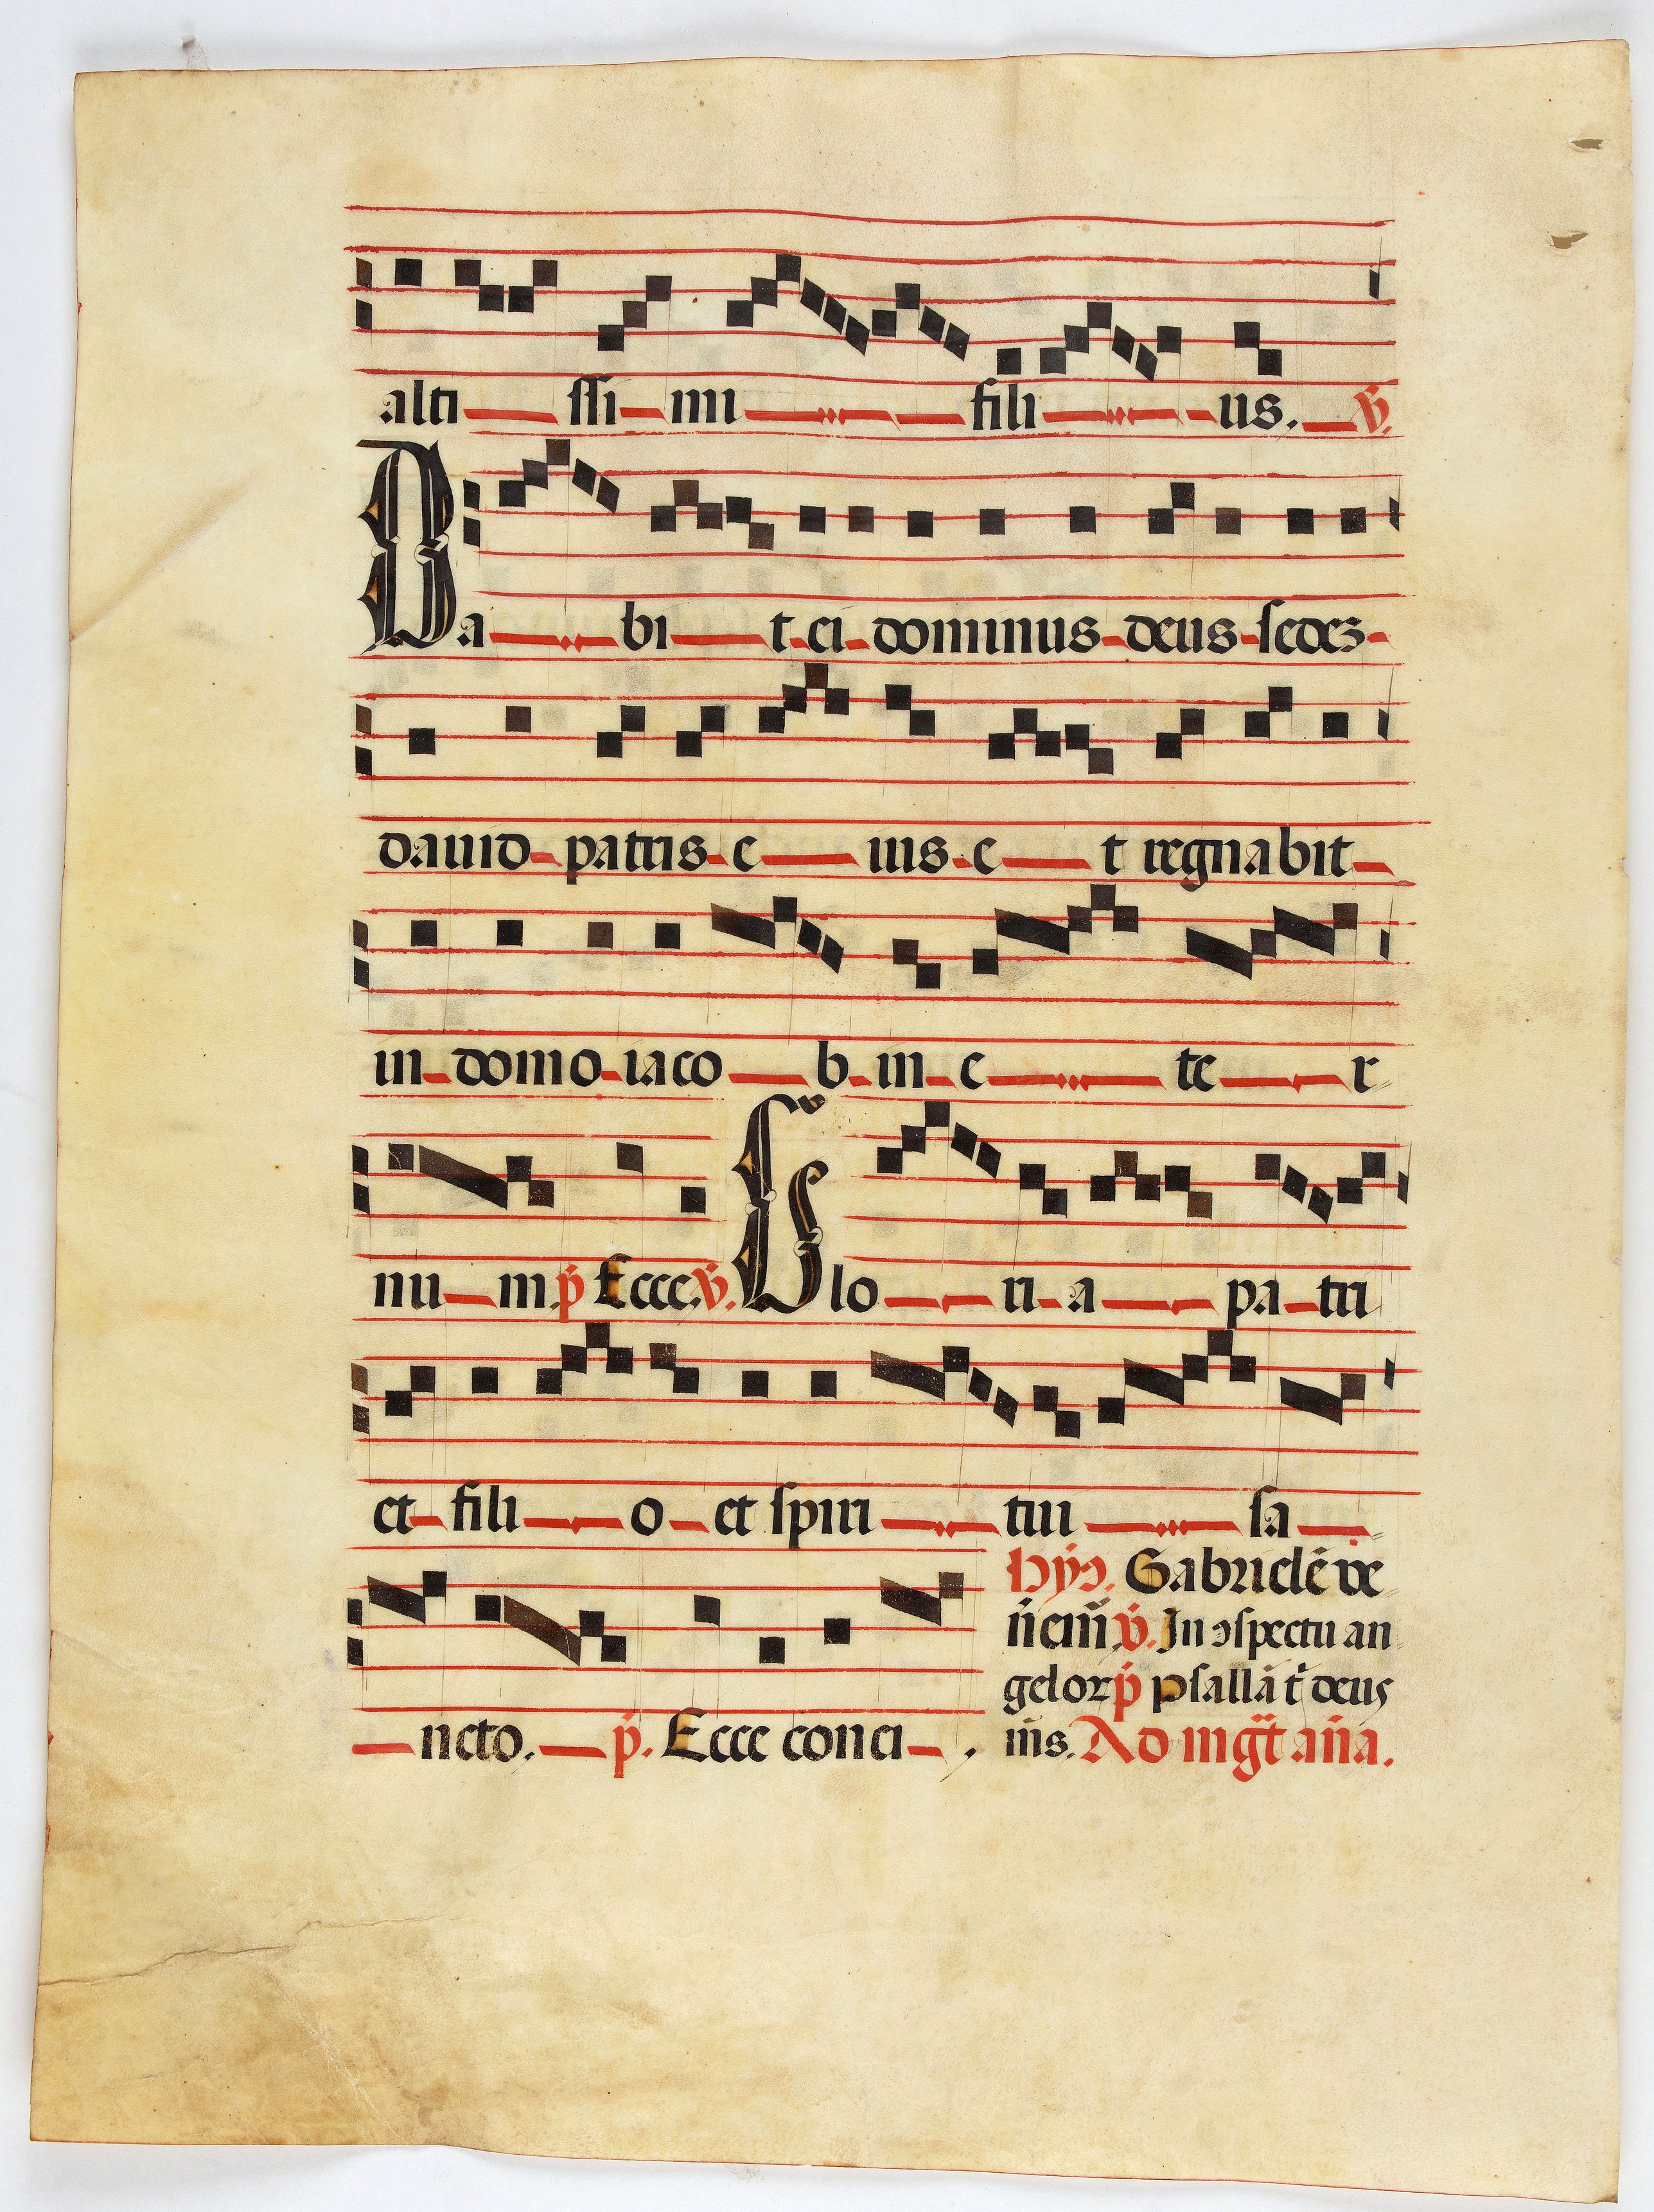 alti ssi mi fili us. v̇.
Da bi t ei dominus deus sedez
dauid patris e ius e t regnabit
in domo iaco b in e te r
nu m. ṗ Ecce. v̇. Glo ri a pa tri
et fili o et spiri tui sa
ncto. ṗ. Ecce conci
hyɔ. Gabrielē ve
n̄em̄ v̇. In ɔspectu an
gelorꝝ ṗ psallā t̄ deus
m̄s. Ad mg̈t an̄a.